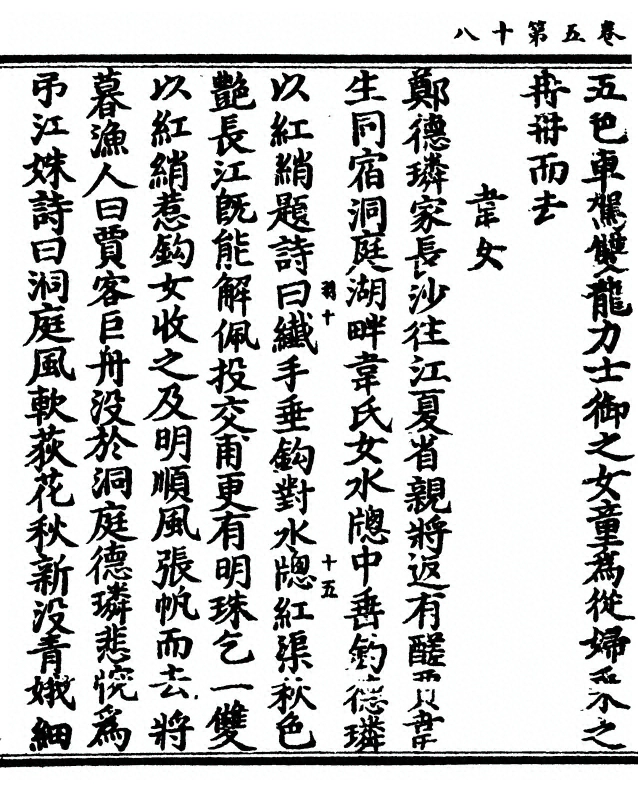 卷五第十八
五色車駕雙龍力士御之女童爲從婦乘之
冉冉而去
韋女
鄭德璘家長沙往江夏省親將返有醝賈韋
生同宿洞庭湖畔韋氏女水牕中垂釣德璘
羽十
十五
以紅綃題詩曰纖手垂鈎對水牕紅渠秋色
艷長江旣能解佩投交甫更有明珠乞一雙
以紅綃惹鈎女收之及明順風張帆而去將
暮漁人曰賈客巨舟没於洞庭德璘悲惋爲
弔江姝詩曰洞庭風軟荻花秋新没青娥細